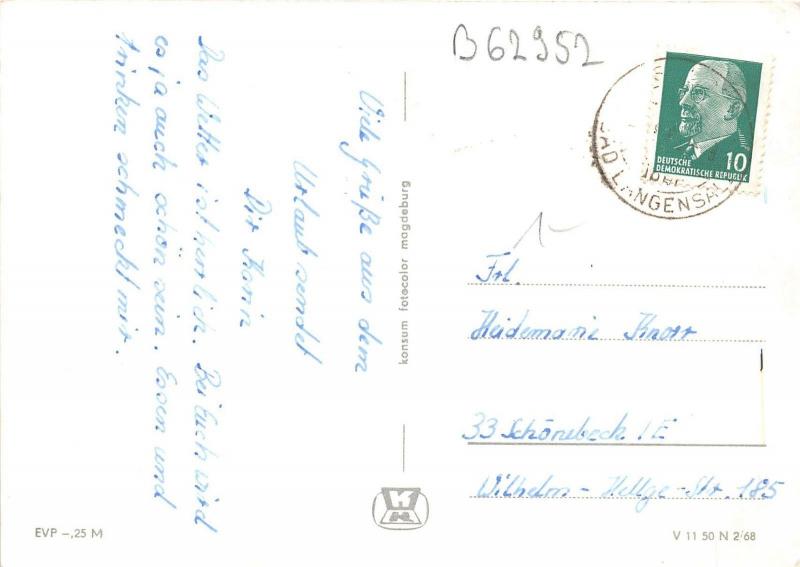 B62952
Viele Grüße aus dem
Urlaub sendet
Dir Karin
Das Wetter ist herrlich. Bei Euch wird
es ja auch schön sein. Essen und
trinken schmeckt mir.
konsum fotocolor magdeburg
DEUTSCHE
DEMOKRATISCHE REPUBLIK
10
BAD LANGENSAL
Frl.
Heidemarie Knorr
33 Schönebeck / E
Wilhelm-Hellge-Str. 185
EVP –,25 M
V 11 50 N 2/68